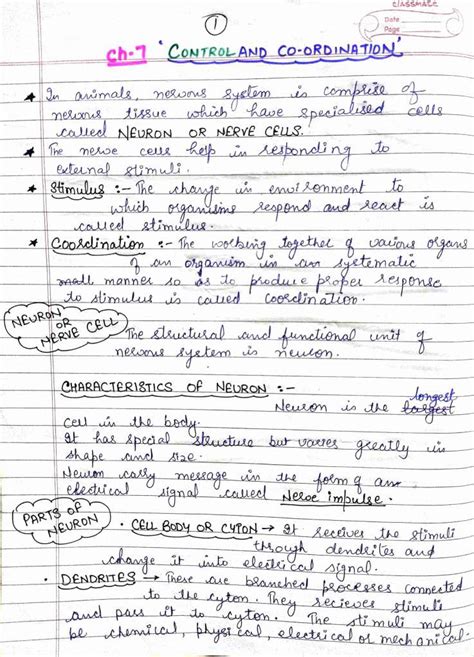 1
classmate
Date
Page
Ch-7 "CONTROL AND CO-ORDINATION"
★ In animals, nervous system is comprise of
nervous tissue which have specialised cells
called NEURON OR NERVE CELLS.
★ The nerve cells help in responding to
external stimuli.
★ Stimulus :- The change in environment to
which organisms respond and react is
called stimulus.
★ Coordination :- The working together of various organs
of an organism in an systematic
manner so as to produce proper response
to stimulus is called coordination.
NEURON
OR
NERVE CELL
The structural and functional unit of
nervous system is neuron.
CHARACTERISTICS OF NEURON :-
longest
Neuron is the largest
cell in the body.
It has special structure but varies greatly in
shape and size.
Neuron carry message in the form of an
electrical signal called Nerve impulse.
PARTS OF
NEURON
• CELL BODY OR CYTON → It receives the stimuli
through dendrites and
change it into electrical signal.
• DENDRITES → These are branched processes connected
to the cyton. They recieves stimuli
and pass it to cyton. The stimuli may
be chemical, physical, electrical or mechanical.